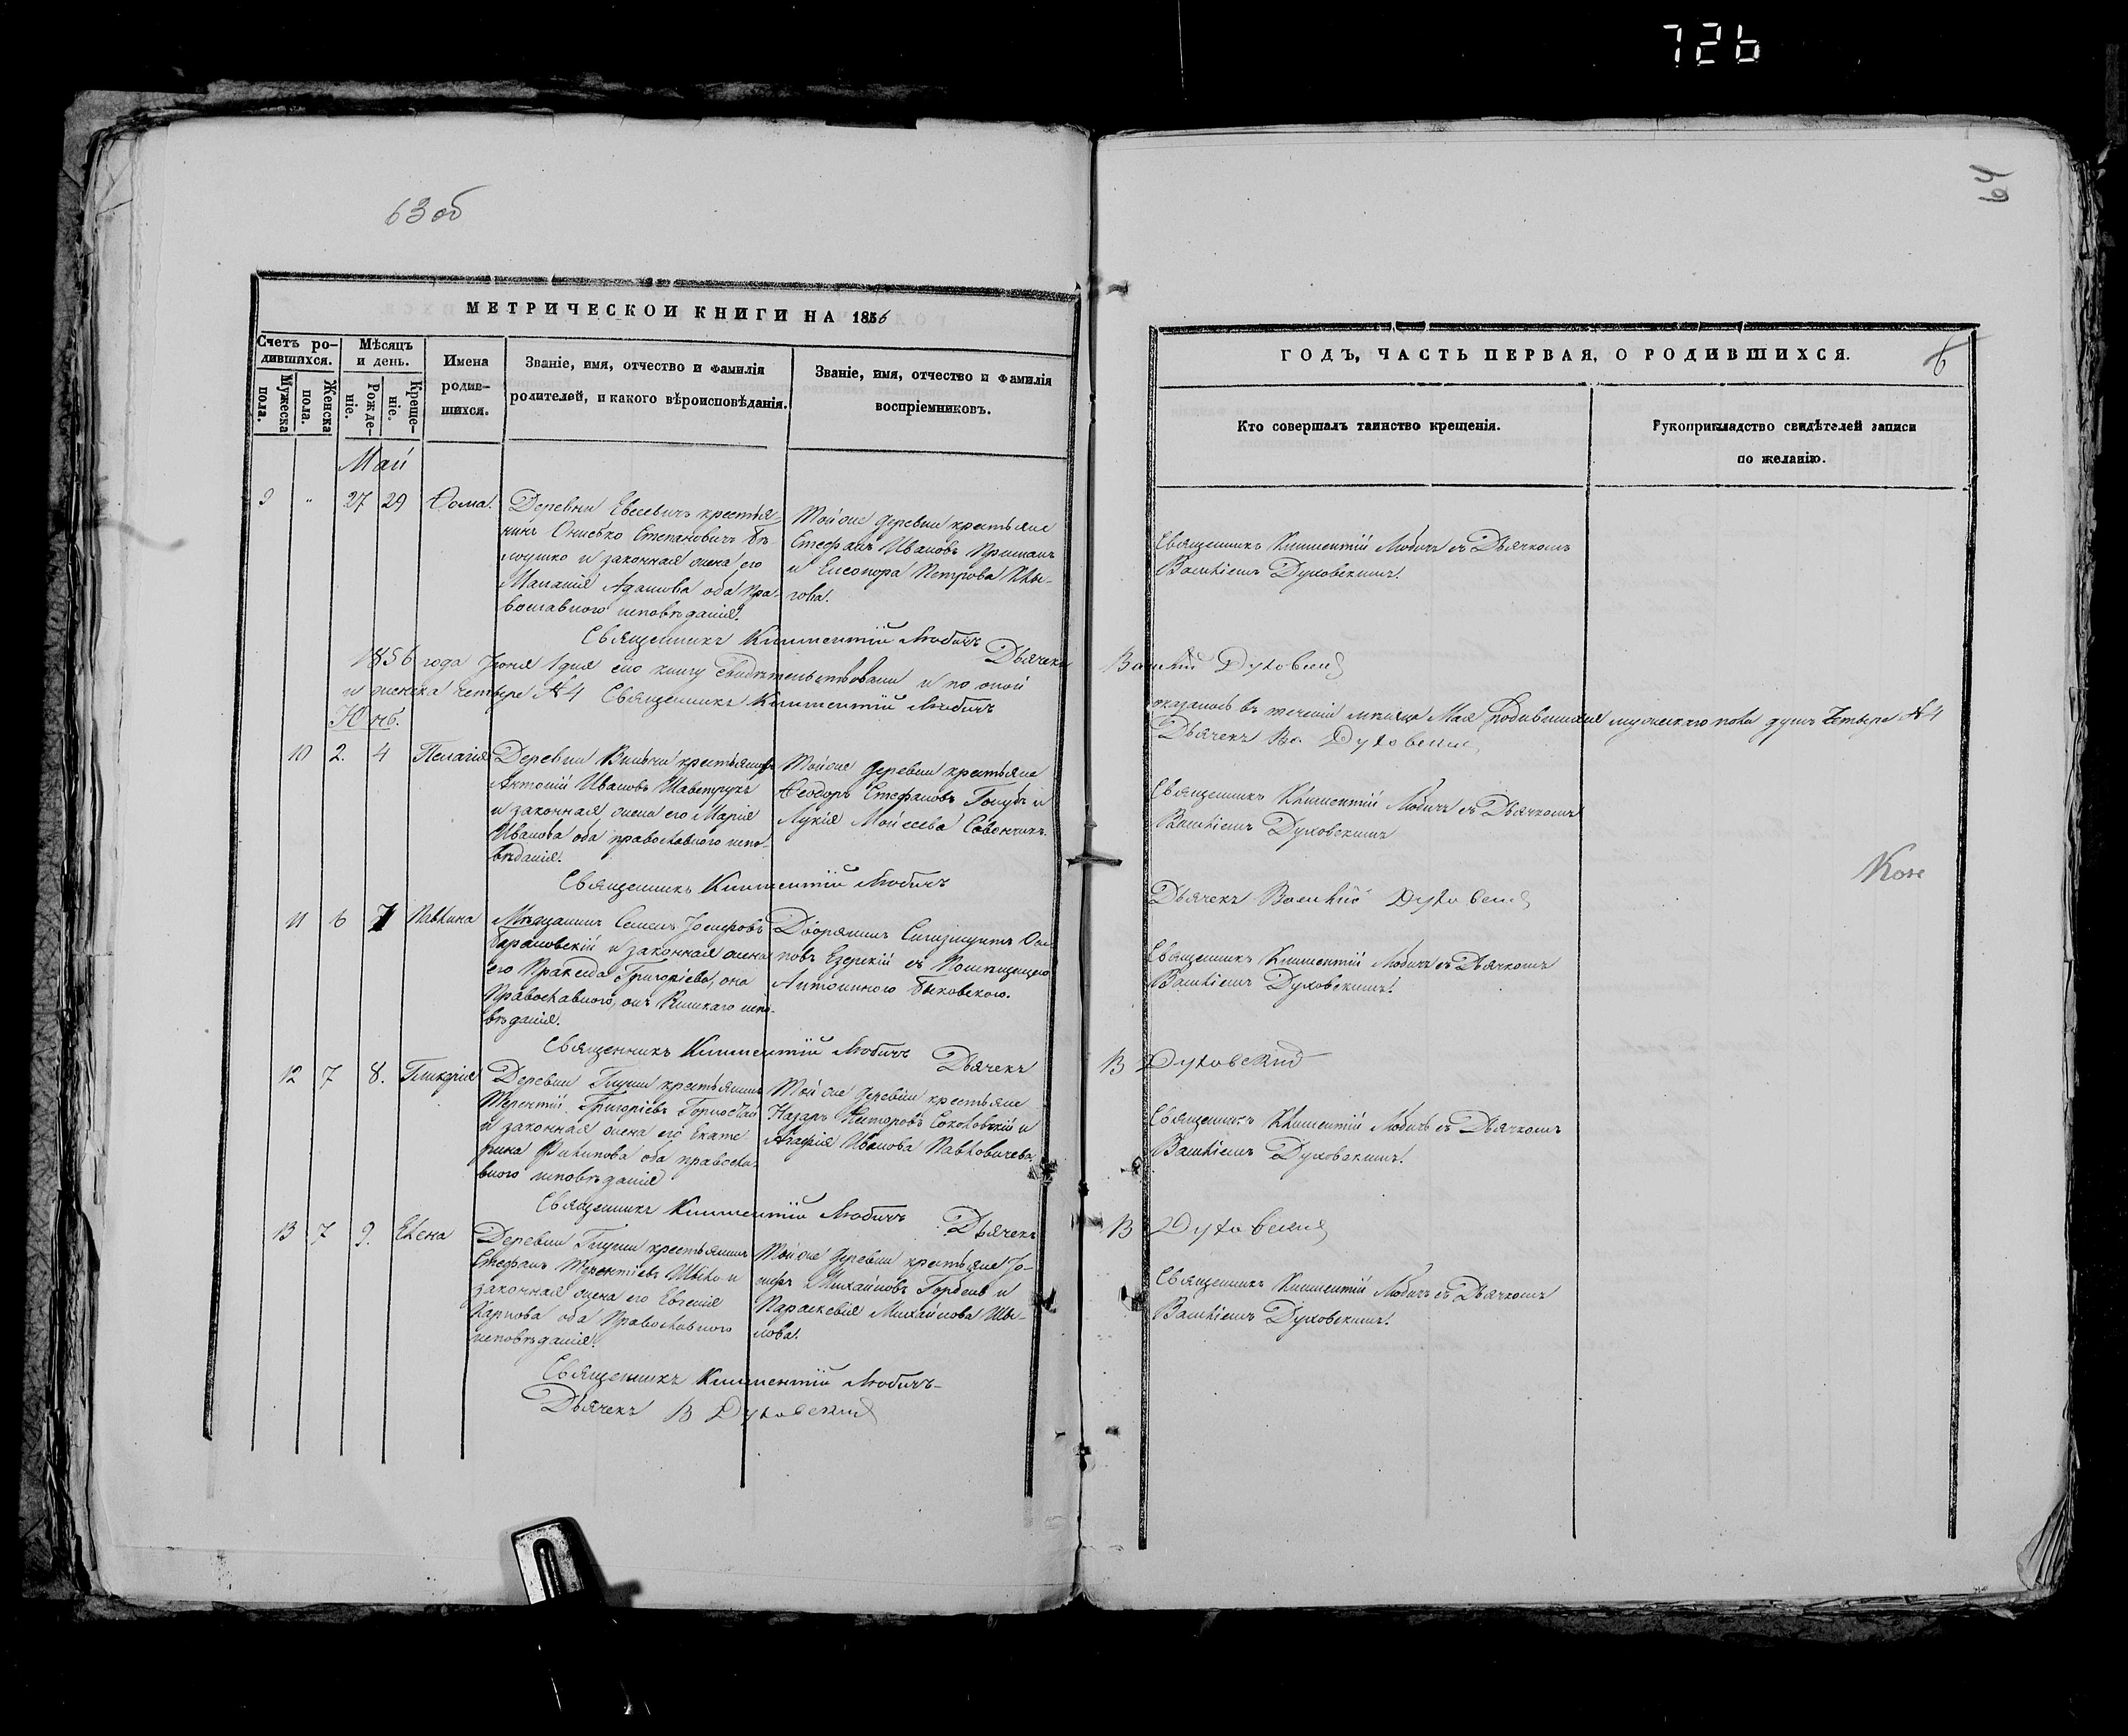 726
63 об
64
МЕТРИЧЕСКОЙ КНИГИ НА 1856
Счетъ ро-
дившихся.
Мѣсяцъ
и день.
Мужеска
пола.
Женска
пола.
Рожде-
ніе.
Креще-
ніе.
Имена
родив-
шихся.
Званіе, имя, отчество и фамилія
родителей, и какого вѣроисповѣданія.
Званіе, имя, отчество и фамилія
воспріемниковъ.
Май
9 " 27 29 Ѳома.
Деревни крестья-
нинъ Степановичъ Бѣ-
лоушко и законная жена его
Адамова оба Пра-
вославного исповѣданія.
Той же деревни крестьяне
Стефанъ Ивановъ
и Петрова
Священникъ Климентій Любичъ Дьячекъ
1856 года Іюня 1 дня сію книгу свидѣтельствовали и по оной
и женска четыре №4 Священникъ Климентій Любичъ
Юнь.
10 2. 4 Пелагія
Деревни крестьянинъ
Антоній Ивановъ Шаветрукъ
и законная жена его Марія
Иванова оба православного испо-
вѣданія.
Той же деревни крестьяне
Ѳеодоръ Стефановъ Голубъ и
Лукія Мойсеева
Священникъ Климентій Любичъ
11 6 7 Павлина
Мѣщанинъ Семенъ Іосифовъ
Барановскій и законная жена
его Праксида Григоріева, она
Православного, онъ Римскаго испо-
вѣданія.
Дворянинъ Сигизмунтъ Оси-
повъ Езерскій съ
Антонинюго Быковского.
Священникъ Климентій Любичъ Дьячекъ
12 7 8. Гликерія
Деревни крестьянинъ
Терентій Григоріевъ Горностай
и законная жена его Екате
рина Филипова оба правосла-
вного исповѣданія
Той же деревни крестьяне
Назаръ Соколовскій и
Агафія Иванова Павловичева.
Священникъ Климентій Любичъ Дьячекъ
13 7 9. Елена
Деревни крестьянинъ
Стефанъ Терентіевъ и
законная жена его Евгенія
Карпова оба Православного
исповѣданія.
Той же деревни крестьяне Іо-
сифъ Михайловъ и
Параскевія Михайлова
Священникъ Климентій Любичъ
Дьячекъ В Духовскій
ГОДЪ, ЧАСТЬ ПЕРВАЯ, О РОДИВШИХСЯ.
6
Кто совершалъ таинство крещенія.
Рукоприкладство свидѣтелей записи
по желанію.
Священникъ Климентій Любичъ съ Дьячкомъ
Духовскимъ.
Духовскій
оказалось въ теченіи мѣсяца Мая родившихся мужескаго пола душъ четыре №4
Дьячекъ Духовскій
Священникъ Климентій Любичъ съ Дьячкомъ
Духовскимъ
Дьячекъ Духовскій
Священникъ Климентій Любичъ съ Дьячкомъ
Духовскимъ.
В Духовскій
Священникъ Климентій Любичъ съ Дьячкомъ
Духовскимъ.
В Духовскій
Священникъ Климентій Любичъ съ Дьячкомъ
Духовскимъ.